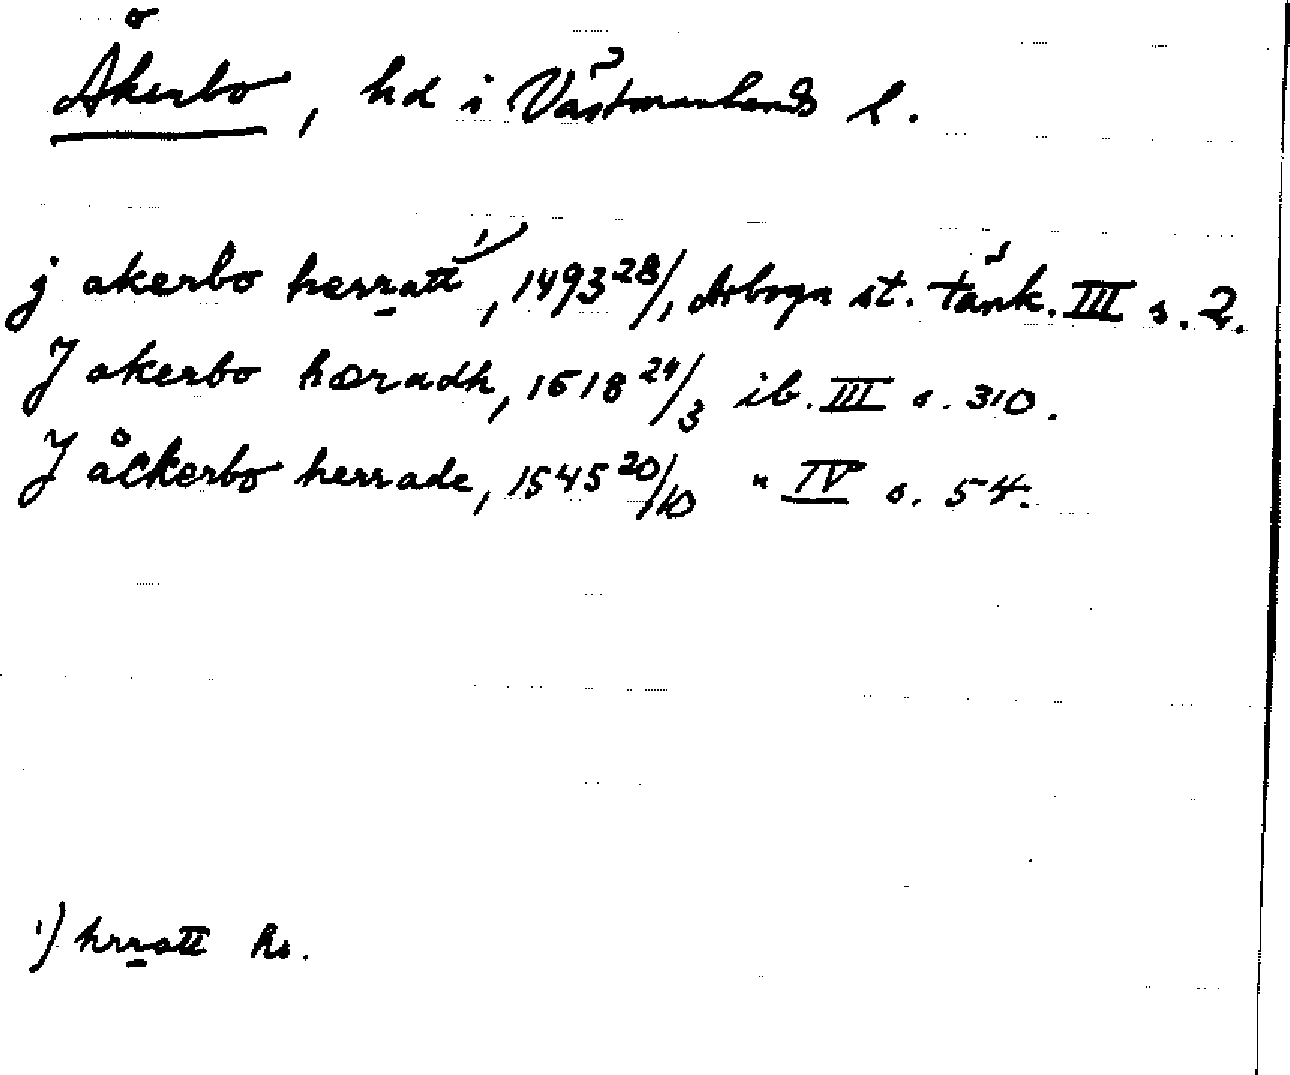 Åkerbo, hd i Västmanlands l.
j akerbo herratt ¹), 1493 28/1, Arboga st. tänk. III s. 2.
J akerbo høradh, 1518 24/3 ib. III s. 310.
J åckerbo herrade, 1545 20/10 " IV s. 54.
¹) hrratt hs.